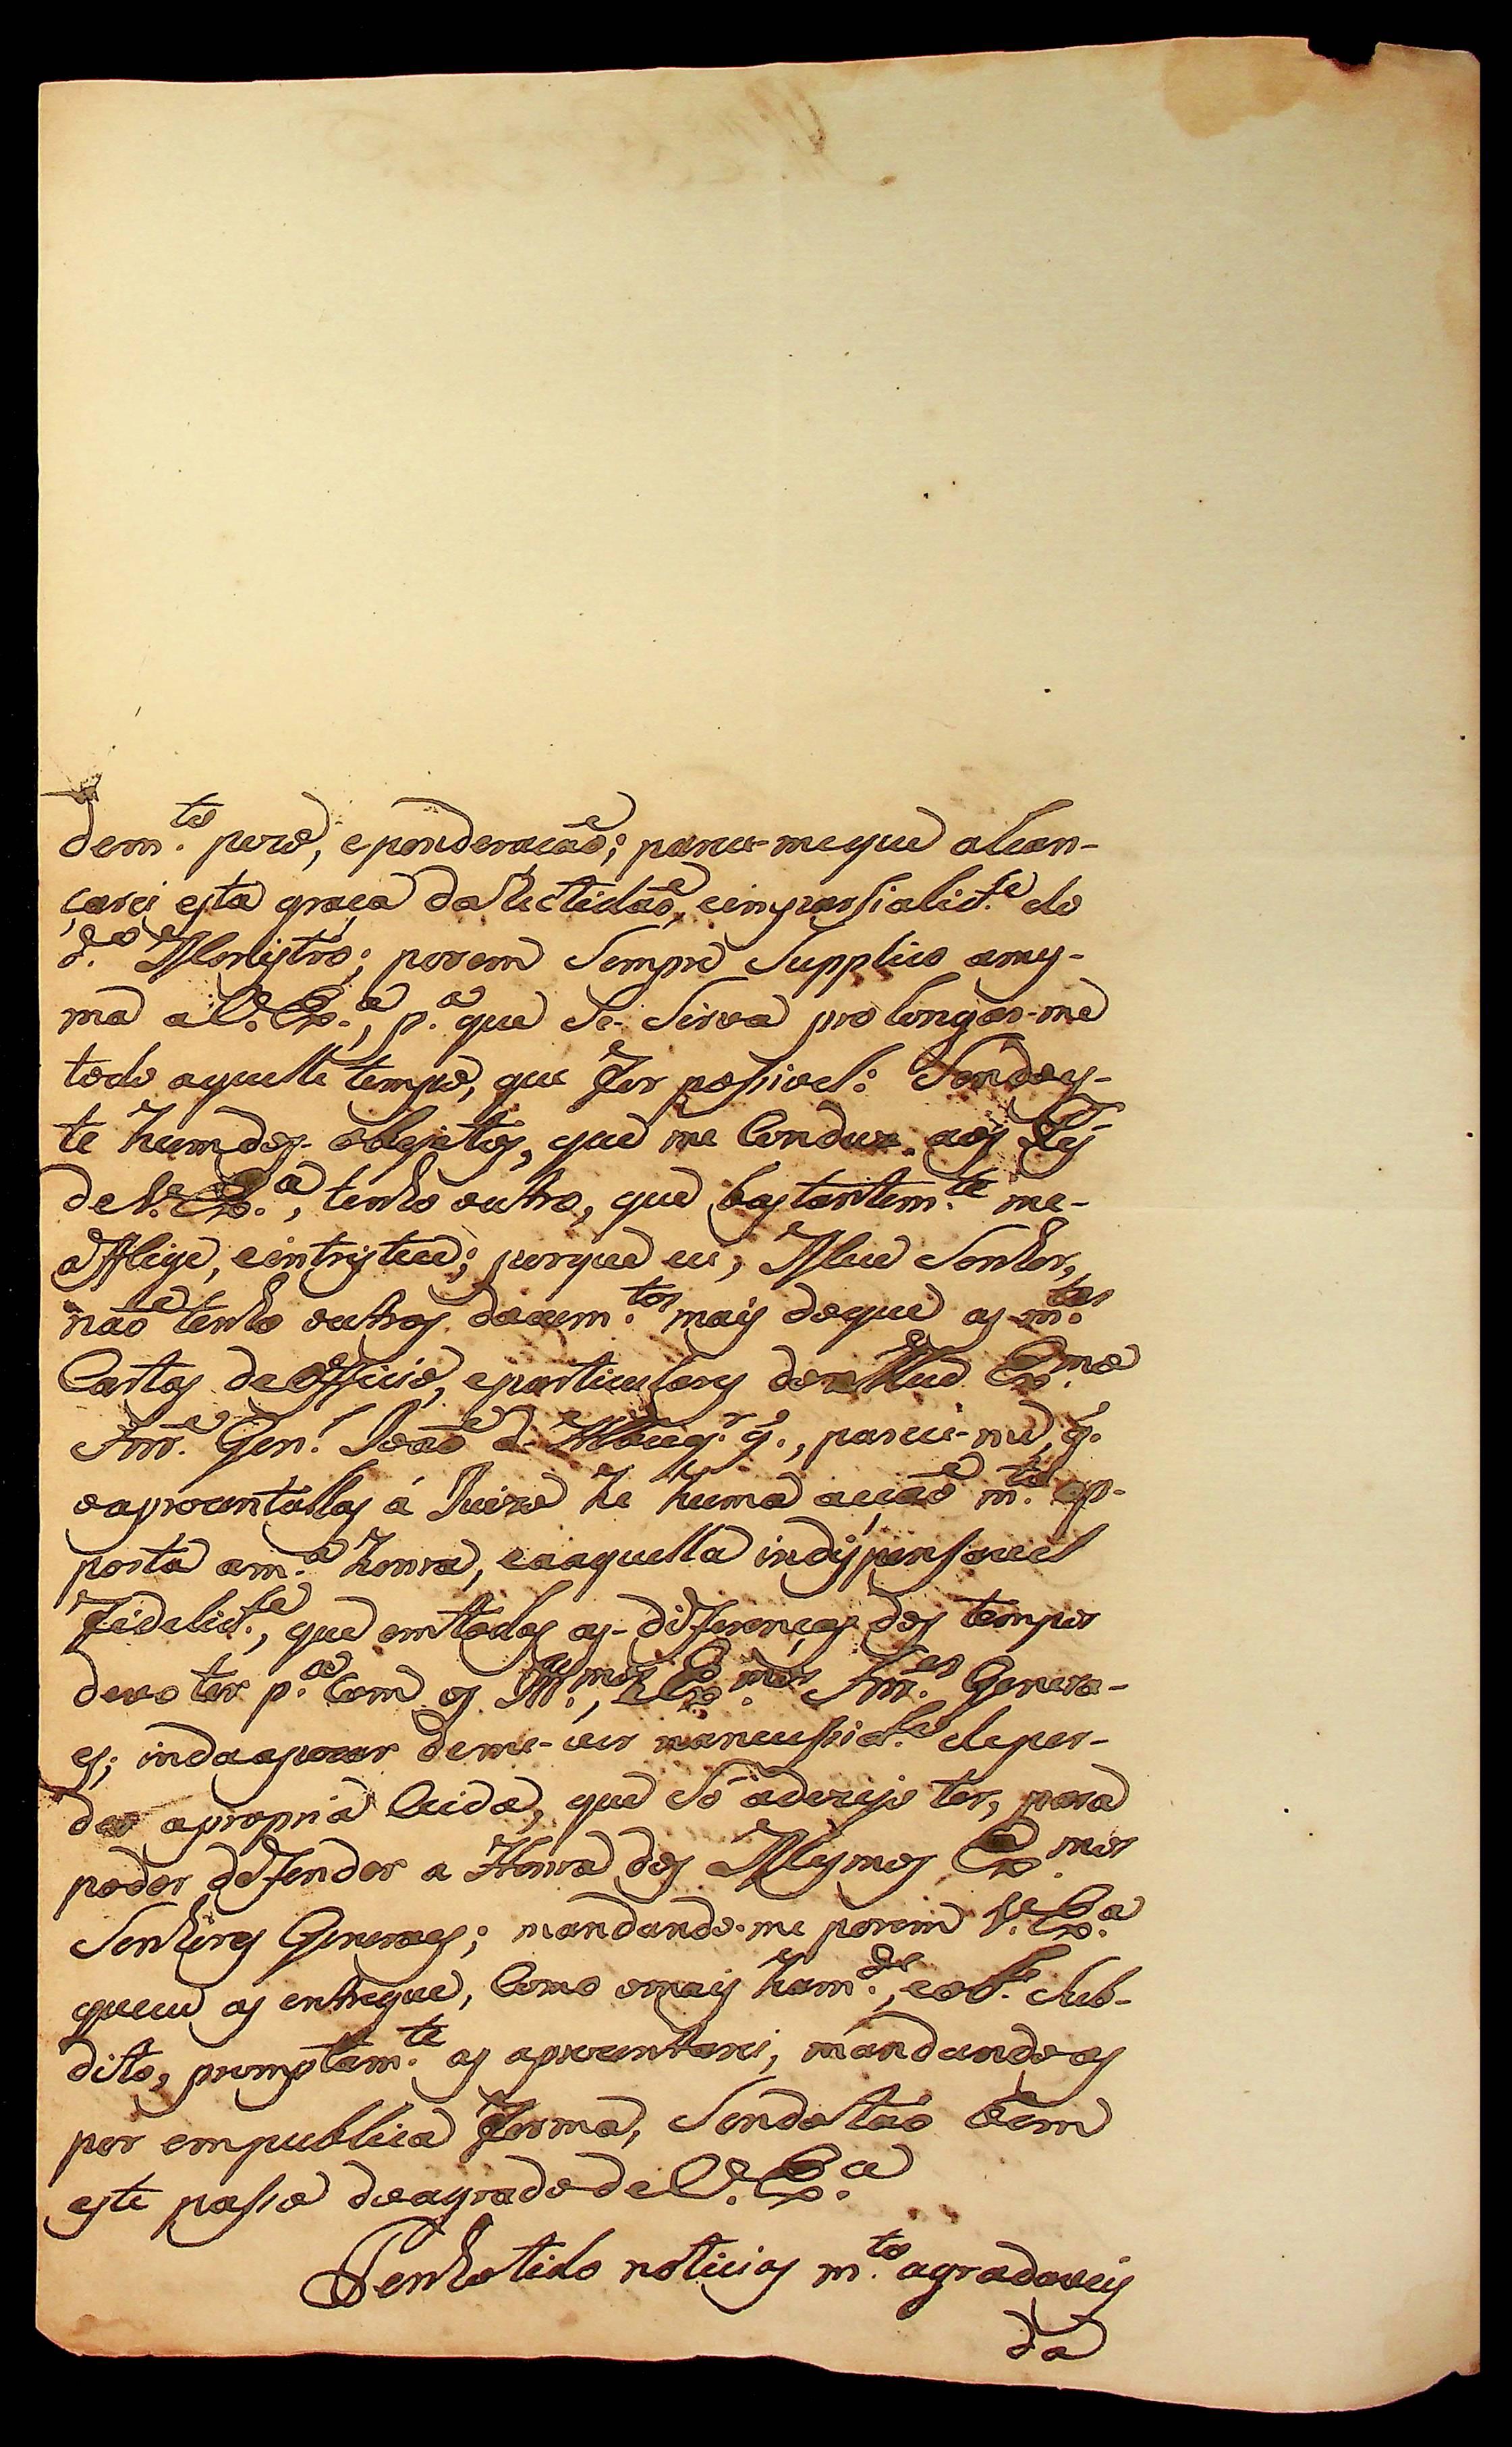 dem.to pezo, eponderacaõ; parece-meque alcan-
çarei esta graça darectidaõ, eimparsialid.e do
d.o Menistro; porem Sempre Supplico ames-
ma aV. Ex.a, p.a que Se-Sirva prolongar-me
todo aquelle tempo, que for posivel: Sendoes-
te humdos-objetos, que me Conduz aos Pés
deV. Ex.a, tenho outro, que bastantem.te me-
afflige, eintristece; porque eu, Meu Senhor,
naõ tenho outros docum.tos mais doque as m.tas
Cartas deofficio, eparticulares do Ex.mo
Snr. Gen.l Joaõ d'Albuq.r q., parece-me, q.
oaprezentallas á Juizo he huma acçaõ m.to op-
posta am.a honra, eaaquella indispensavel
fidelid.e, que emtodas as-diferenças dos tempos
devo ter p.a com os Ill.mos, e Ex.mos Snr.es Genera-
es; indaapezar deme-ver deper-
der apropria vida, que Só adezejo ter, para
poder defender a Honra dos Mesmos Ex.mos
Senhores Generaes; mandando-me porem V. Ex.a
queeu as entregue, Como omais hum.de, eob.e Sub-
dito, promptam.te as aprezentarei, mandandoas
por empublica forma, Sendotaõ bem
este passo doagradodeV. Ex.a
Tenhotido noticias m.to agradaveis
da